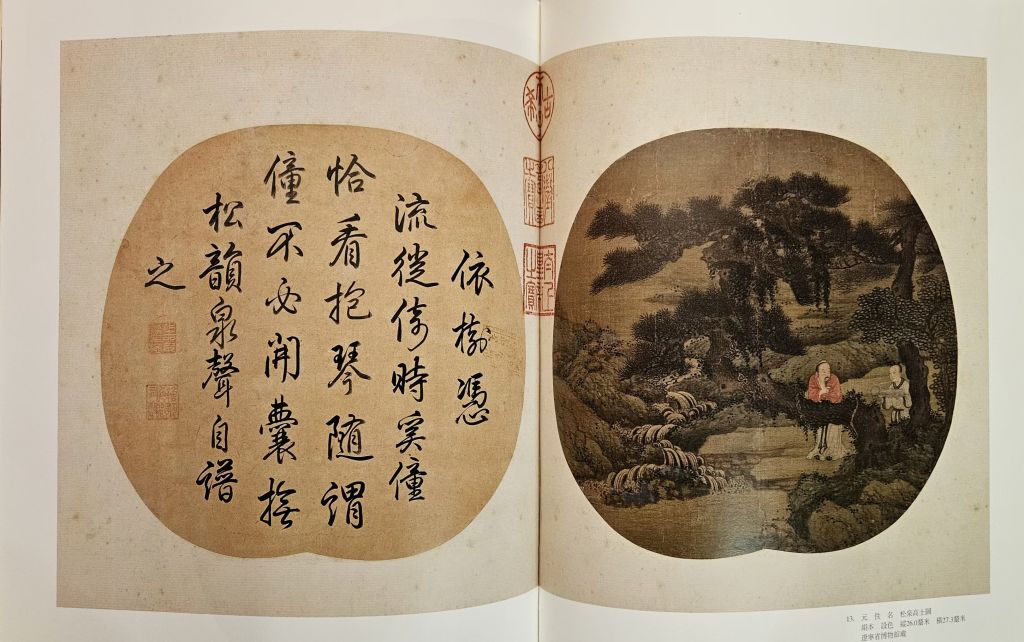 依樹憑
流徙倚時奚僮
恰看抱琴隨謂
僮不必開囊撫
松韻泉聲自譜
之
13. 元 佚 名 松泉高士圖
絹本 設色 縱26.0釐米 橫27.3釐米
遼寧省博物館藏